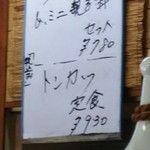 ミニ親子丼
セット
¥780
トンカツ
定食
¥930